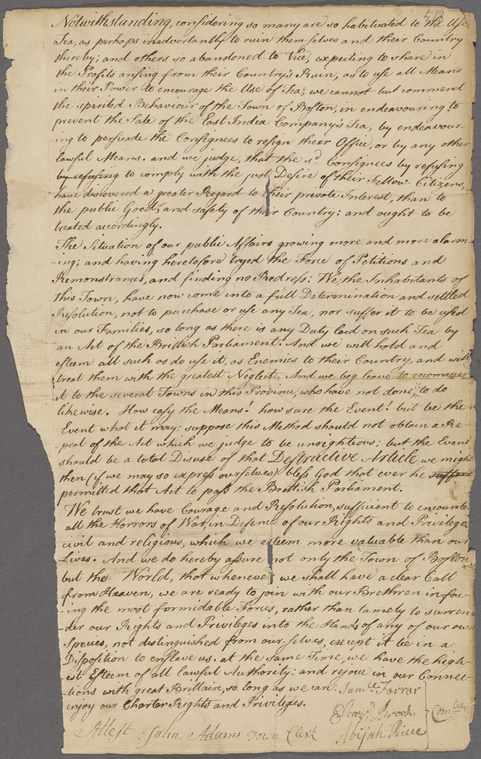 Notwithstanding, considering so many are so habituated to the Use
Tea, as perhaps inadvertantly to ruin themselves and their Country
thereby; and others so abandoned to Vice, expecting to share in
the Profits arising from their Country's Ruin, as to use all Means
in their Power to encourage the Use of Tea; we cannot but commend
the spirited Behaviour of the Town of Boston, in endeavouring to
prevent the Sale of the East India Company's Tea, by endeavour
ing to persuade the Consignees to resign their Office, or by any other
lawful Means. and we judge, that the sd. Consignees by refusing
by refusing to comply with the just Desire of their Fellow Citizens,
have discovered a greater Regard to their private Interest, than to
the public Good, and safety of their Country; and ought to be
treated accordingly.
The Situation of our public Affairs growing more and more alarm
ing; and having heretofore tryed the Force of Petitions and
Remonstrances, and finding no Redress; We the Inhabitants of
this Town, have now come into a full Determination and settled
Resolution, not to purchase or use any Tea, nor suffer it to be used
in our Families, so long as there is any Duty laid on such Tea by
an Act of the British Parliament. And we will hold and
esteem all such as do use it, as Enemies to their Country, and will
treat them with the greatest Neglect. And we beg leave to recommen
it to the several Towns in this Province, who have not done, to do
likewise. How easy the Means! how sure the Event! but be the
Event what it may: suppose this Method should not obtain a Re
peal of the Act which we judge to be unrightious; but the Event
should be a total Disuse of that Destructive Article we might
then (if we may so express ourselves) bless God that ever he suffered
permitted that Act to pass the British Parliament.
We trust we have Courage and Resolution, sufficient to encounte
all the Horrors of War, in Defence of our Rights and Privileges
civil and religious, which we esteem more valuable than our
Lives. And we do hereby assure not only the Town of Boston
but the World, that whenever we shall have a clear Call
from Heaven, we are ready to join with our Brethren in fac-
ing the most formidable Forces, rather than tamely to surren
der our Rights and Privileges into the Hands of any of our own
Species, not distinguished from our selves, except it be in a
Disposition to enslave us. at the same Time, we have the high
est Esteem of all lawful Authority; and rejoice in our Connec
tions with great Brittain, so long as we can
enjoy our Charter Rights and Privileges.
Saml. Farrar
Eleazr. Brooks
Abijah Peirce
Comtee
Attest John Adams Town Clerk